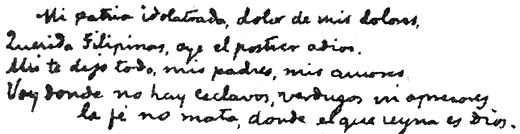 Mi patria idolatrada, dolor de mis dolores,
Querida Filipinas, oye el postrer adios.
Ahi te dejo todo, mis padres, mis amores
Voy donde no hay esclavos, verdugos ni opresores
la fé no mata, donde el que reyna es Dios.